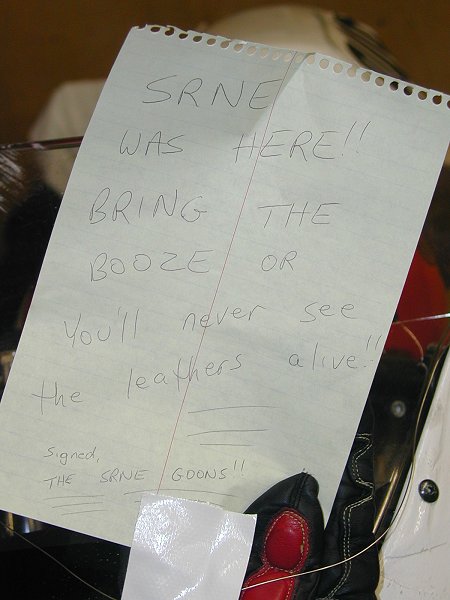 SRNE
WAS HERE!!
BRING THE
BOOZE OR
You'll never see
the leathers alive!!
signed,
THE SRNE GOONS!!